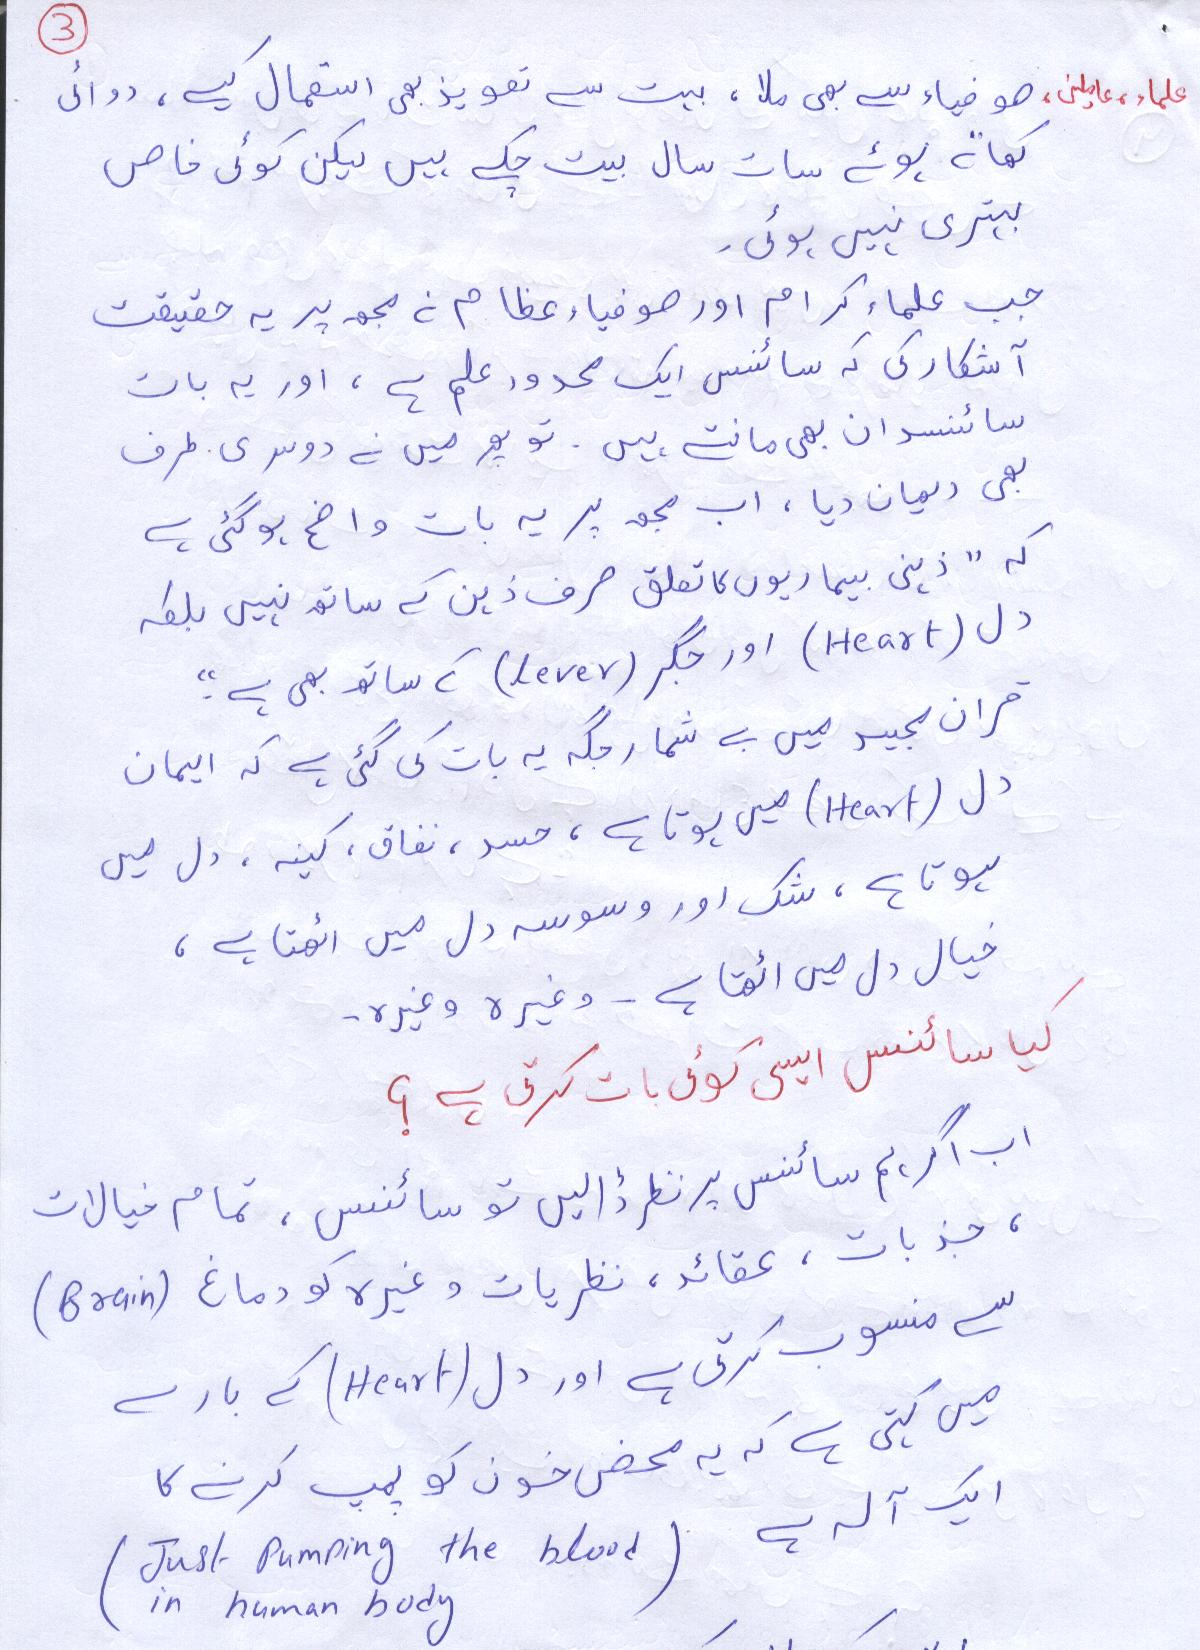 3
علماء، عاملین، صوفیاء سے بھی ملا، بہت سے تعویذ بھی استعمال کیے، دوائی
کھاتے ہوئے سات سال بیت چکے ہیں لیکن کوئی خاص
بہتری نہیں ہوئی۔
جب علماء کرام اور صوفیاء عظام نے مجھ پر یہ حقیقت
آشکار کی کہ سائنس ایک محدود علم ہے، اور یہ بات
سائنسدان بھی مانتے ہیں۔ تو پھر میں نے دوسری طرف
بھی دھیان دیا، اب مجھ پر یہ بات واضح ہو گئی ہے
کہ "ذہنی بیماریوں کا تعلق صرف ذہن کے ساتھ نہیں بلکہ
دل (Heart) اور جگر (lever) کے ساتھ بھی ہے"۔
قران مجید میں بے شمار جگہ یہ بات کی گئی ہے کہ ایمان
دل (Heart) میں ہوتا ہے، حسد، نفاق، کینہ، دل میں
ہوتا ہے، شک اور وسوسہ دل میں اٹھتا ہے،
خیال دل میں اٹھتا ہے۔ وغیرہ وغیرہ۔
کیا سائنس ایسی کوئی بات کرتی ہے؟
اب اگر ہم سائنس پر نظر ڈالیں تو سائنس، تمام خیالات
، جذبات، عقائد، نظریات وغیرہ کو دماغ (Brain)
سے منسوب کرتی ہے اور دل (Heart) کے بارے
میں کہتی ہے کہ یہ محض خون کو پمپ کرنے کا
ایک آلہ ہے
(Just Pumping the blood
in human body)